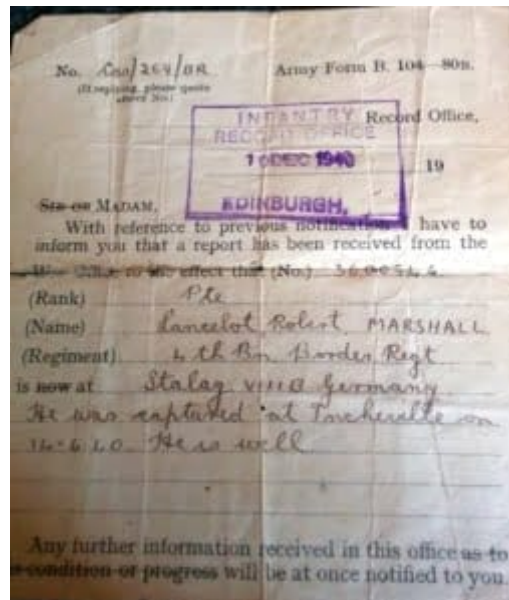 No. Cas/264/BR Army Form B. 104—80B.
(If replying, please quote
above No.)
INFANTRY Record Office,
RECORD OFFICE
10 DEC 1940 19
EDINBURGH.
SIR OR MADAM,
With reference to previous notification I have to
inform you that a report has been received from the
War Office to the effect that (No.)
(Rank) Pte
(Name) Lancelot Robert MARSHALL
(Regiment) 4th Bn Border Regt
is now at Stalag VIIIB Germany
He was captured at Incheville on
14-6-40 He is well
Any further information received in this office as to
condition or progress will be at once notified to you.